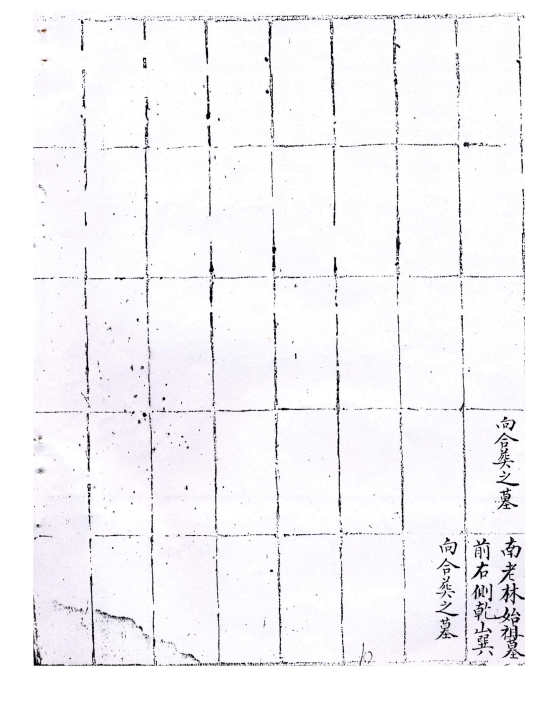 向合葬之墓
南老林始祖墓
前右側乾山巽
向合葬之墓